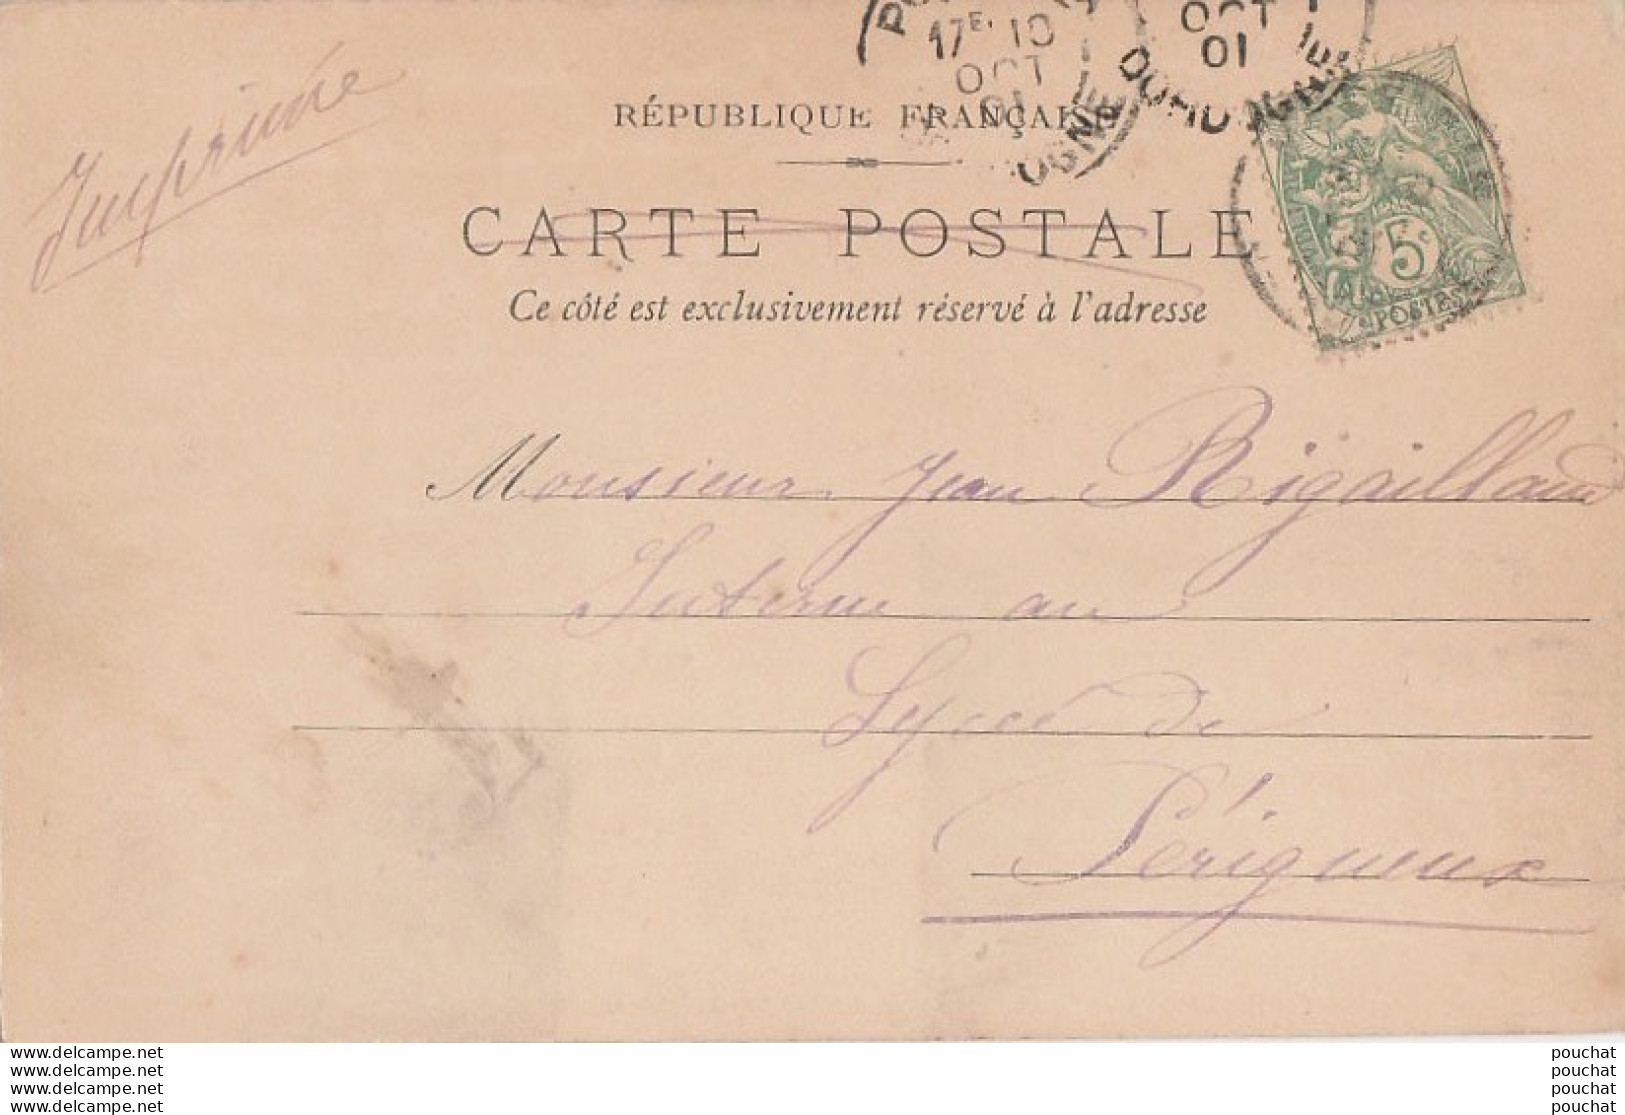 17E 10
OCT
01
OCT
01
DORDOGNE
Imprimée
RÉPUBLIQUE FRANÇAISE
CARTE POSTALE
5c
POSTES
Ce côté est exclusivement réservé à l'adresse
Monsieur Jean Rigaillaud
Interne au
Lycée de
Périgueux
www.delcampe.net
www.delcampe.net
www.delcampe.net
www.delcampe.net
pouchat
pouchat
pouchat
pouchat